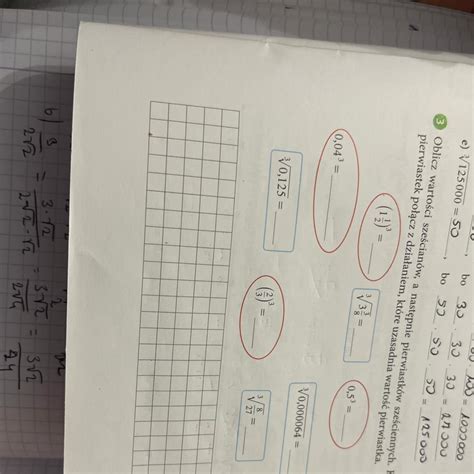 100 = 1000000
bo 30 · 30 · 30 = 27000
e) ∛125 000 = 50, bo 50 · 50 · 50 = 125000
3 Oblicz wartości sześcianów, a następnie pierwiastków sześciennych.
pierwiastek połącz z działaniem, które uzasadnia wartość pierwiastka.
(1 1/2)³ = ___ 0,5³ = ___
0,04³ = ___ ∛(3 3/8) = ___ ∛0,000064 = ___
∛0,125 = ___ (2/3)³ = ___ ∛(8/27) = ___
b) 3/(2√2) = (3·√2)/(2√2·√2) = 3√2/(2√4) = 3√2/